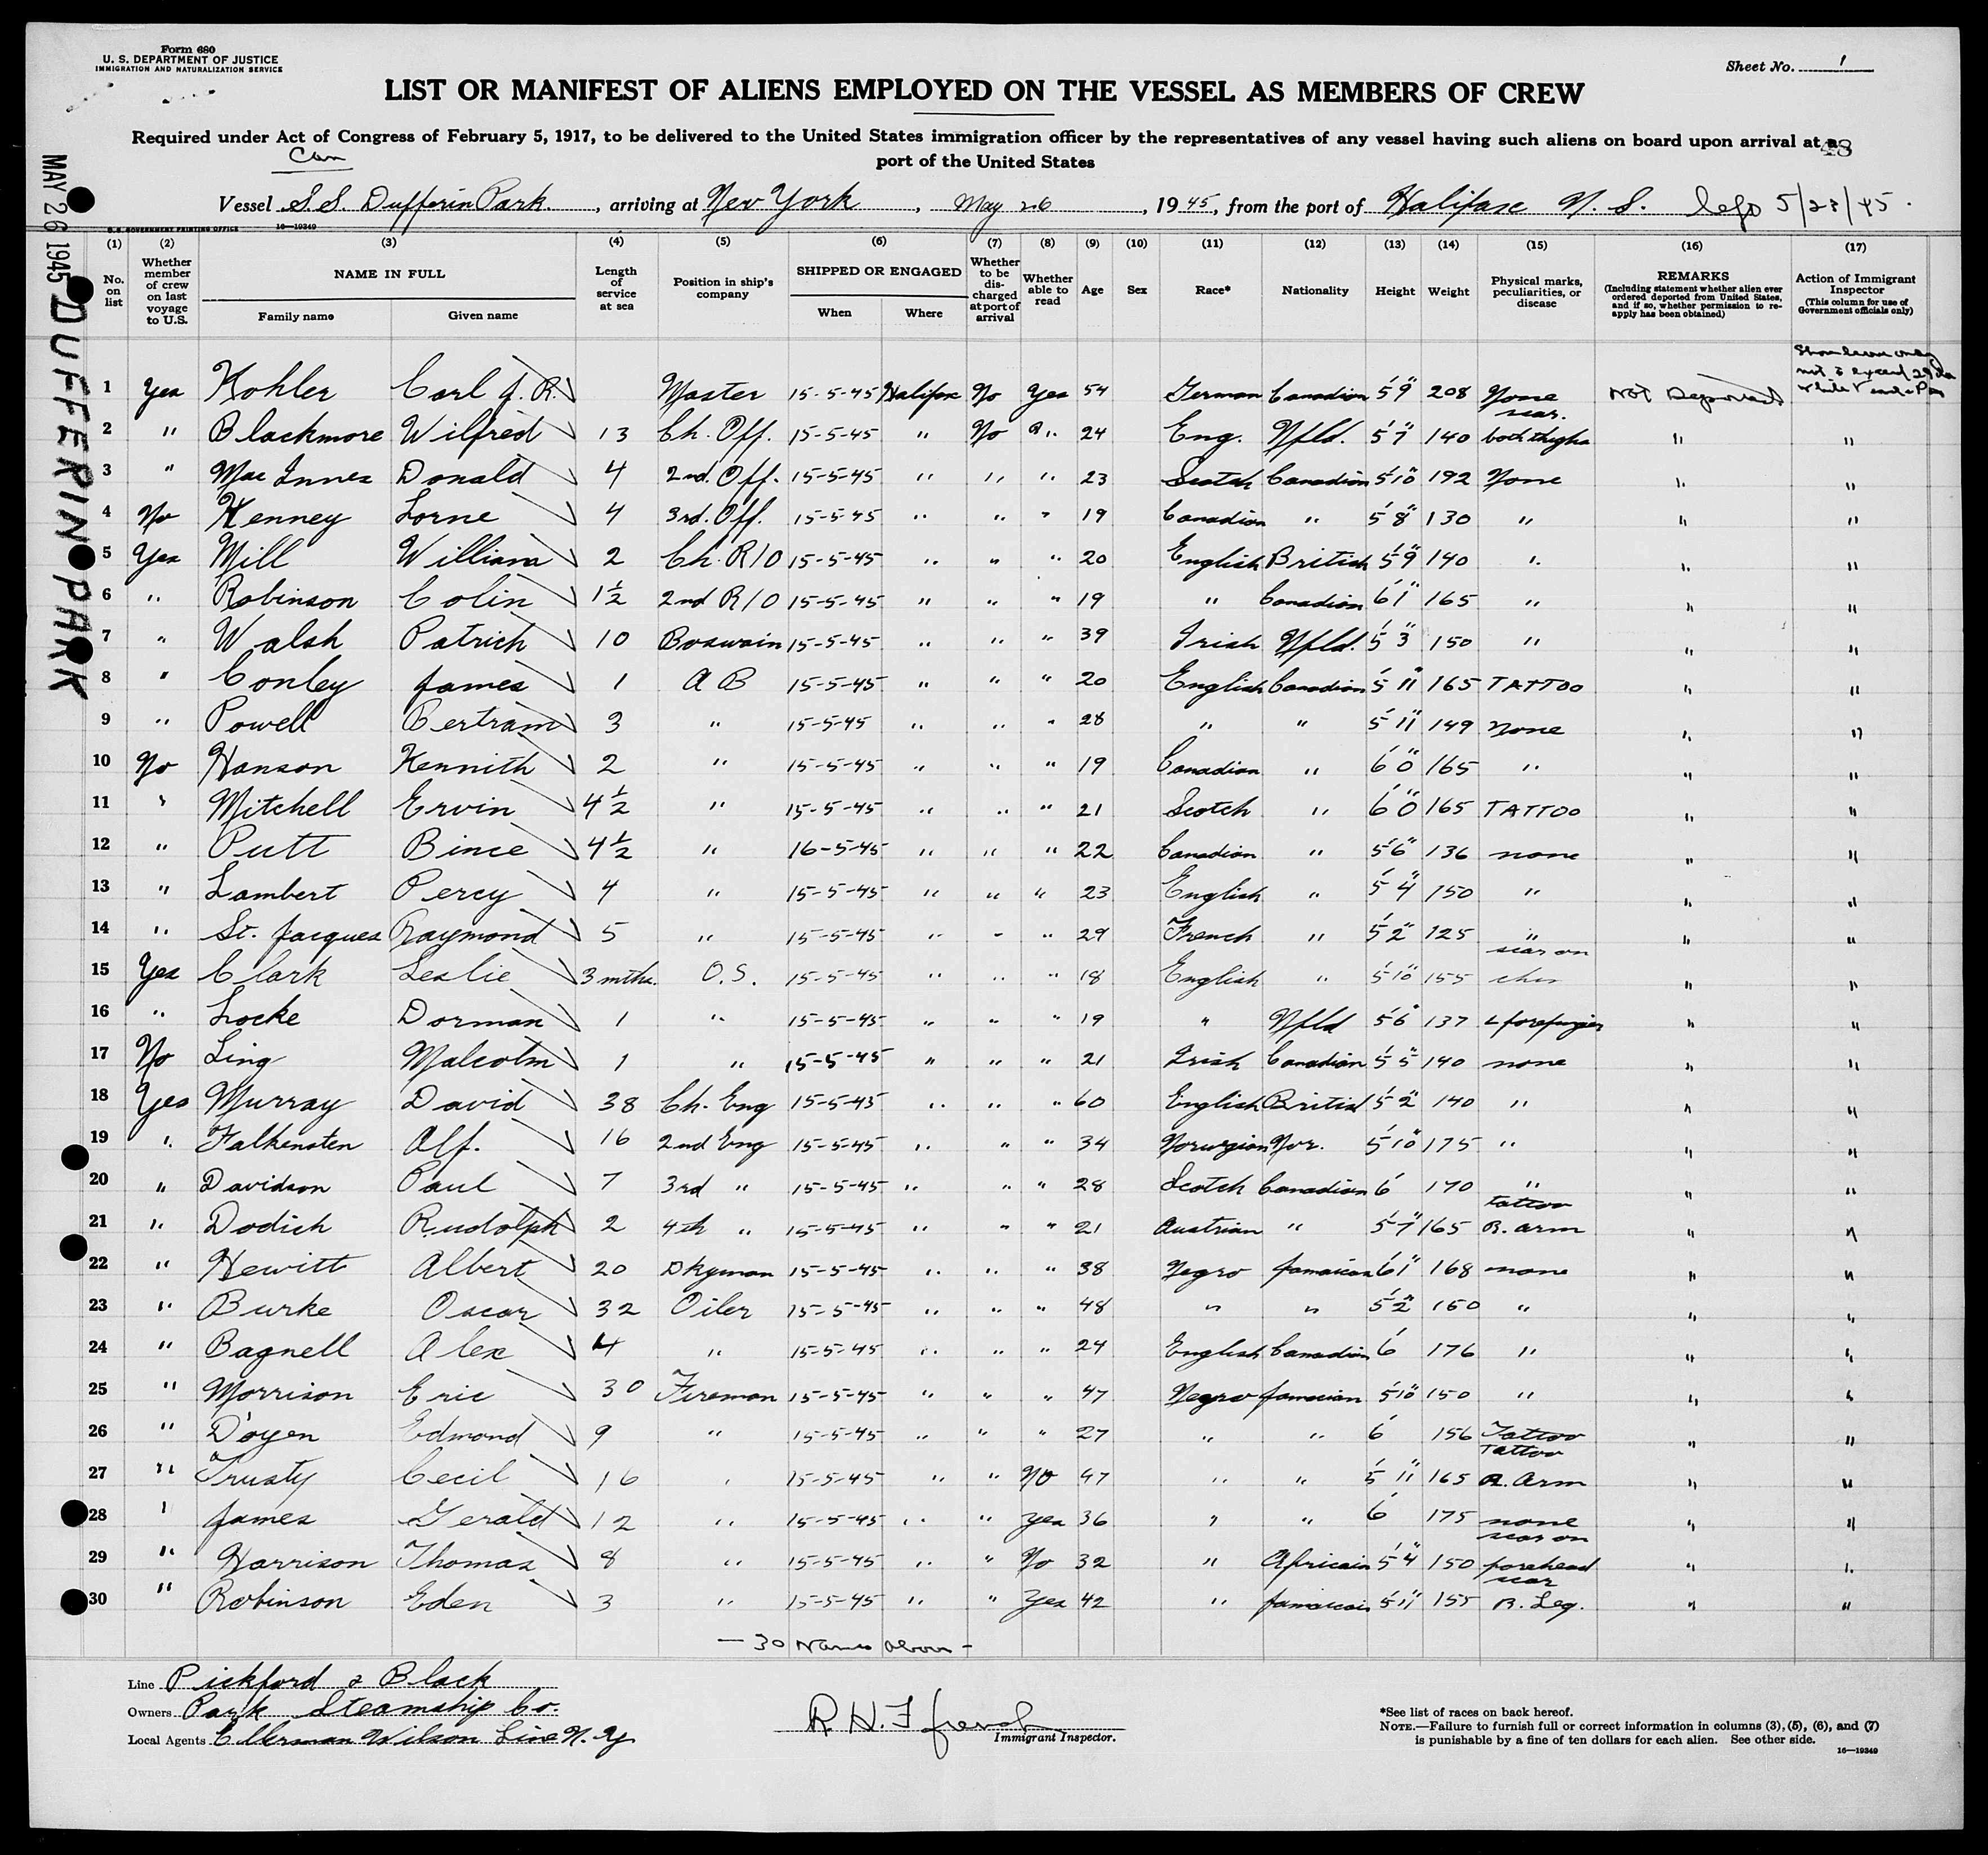 Form 680
U. S. DEPARTMENT OF JUSTICE
IMMIGRATION AND NATURALIZATION SERVICE
Sheet No. 1
LIST OR MANIFEST OF ALIENS EMPLOYED ON THE VESSEL AS MEMBERS OF CREW
Required under Act of Congress of February 5, 1917, to be delivered to the United States immigration officer by the representatives of any vessel having such aliens on board upon arrival at a
port of the United States
48
Can
Vessel S.S. Dufferin Park, arriving at New York, May 26, 1945, from the port of Halifax N. S. left 5/23/45.
MAY 26 1945 DUFFERIN PARK
U.S. GOVERNMENT PRINTING OFFICE 16—19349
(1) (2) (3) (4) (5) (6) (7) (8) (9) (10) (11) (12) (13) (14) (15) (16) (17)
No. on list
Whether member of crew on last voyage to U.S.
NAME IN FULL
Family name Given name
Length of service at sea
Position in ship's company
SHIPPED OR ENGAGED
When Where
Whether to be discharged at port of arrival
Whether able to read
Age
Sex
Race*
Nationality
Height
Weight
Physical marks, peculiarities, or disease
REMARKS
(Including statement whether alien ever ordered deported from United States, and if so, whether permission to reapply has been obtained)
Action of Immigrant Inspector
(This column for use of Government officials only)
Shore leave only
not to exceed 29 da
1 Yes Kohler Carl J. R. Master 15-5-45 Halifax No Yes 54 German Canadian 5'9" 208 None Not Deported
2 " Blackmore Wilfred 13 Ch. Off. 15-5-45 " No " 24 Eng. Nfld. 5'7" 140 scar. both thighs " "
3 " Mac Innes Donald 4 2nd. Off. 15-5-45 " " " 23 Scotch Canadian 5'10" 192 None " "
4 No Kenney Lorne 4 3rd. Off. 15-5-45 " " " 19 Canadian " 5'8" 130 " " "
5 Yes Mill William 2 Ch. R/O 15-5-45 " " " 20 English British 5'9" 140 " " "
6 " Robinson Colin 1½ 2nd R/O 15-5-45 " " " 19 " Canadian 6'1" 165 " " "
7 " Walsh Patrick 10 Boswain 15-5-45 " " " 39 Irish Nfld. 5'3" 150 " " "
8 " Conley James 1 A B 15-5-45 " " " 20 English Canadian 5'11" 165 TATTOO " "
9 " Powell Bertram 3 " 15-5-45 " " " 28 " " 5'11" 149 none " "
10 No Hanson Kennith 2 " 15-5-45 " " " 19 Canadian " 6'0" 165 " " "
11 " Mitchell Ervin 4½ " 15-5-45 " " " 21 Scotch " 6'0" 165 TATTOO " "
12 " Putt Bince 4½ " 16-5-45 " " " 22 Canadian " 5'6" 136 none " "
13 " Lambert Percy 4 " 15-5-45 " " " 23 English " 5'4" 150 " " "
14 " St. Jacques Raymond 5 " 15-5-45 " " " 29 French " 5'2" 125 " " "
15 Yes Clark Leslie 3 mths. O.S. 15-5-45 " " " 18 English " 5'10" 155 scar on " "
16 " Locke Dorman 1 " 15-5-45 " " " 19 " Nfld 5'6" 137 L forefinger " "
17 No Ling Malcolm 1 " 15-5-45 " " " 21 Irish Canadian 5'5" 140 none " "
18 Yes Murray David 38 Ch. Eng 15-5-45 " " " 60 English British 5'2" 140 " " "
19 " Falkensten Alf. 16 2nd Eng 15-5-45 " " " 34 Norwgian Nor. 5'10" 175 " " "
20 " Davidson Paul 7 3rd " 15-5-45 " " " 28 Scotch Canadian 6' 170 " " "
21 " Dodich Rudolph 2 4th " 15-5-45 " " " 21 Austrian " 5'7" 165 tattoo R. arm " "
22 " Hewitt Albert 20 Dkyman 15-5-45 " " " 38 Negro Jamaican 6'1" 168 none " "
23 " Burke Oscar 32 Oiler 15-5-45 " " " 48 " " 5'2" 160 " " "
24 " Bagnell Alex 4 " 15-5-45 " " " 24 English Canadian 6' 176 " " "
25 " Morrison Eric 30 Fireman 15-5-45 " " " 47 Negro Jamacian 5'10" 150 " " "
26 " Doyen Edmond 9 " 15-5-45 " " " 27 " " 6' 156 Tattoo " "
27 " Trusty Cecil 16 " 15-5-45 " " No 47 " " 5'11" 165 Tattoo R. Arm " "
28 " James Gerald 12 " 15-5-45 " " Yes 36 " " 6' 175 none " "
29 " Harrison Thomas 8 " 15-5-45 " " No 32 " Africain 5'4" 150 scar on forehead " "
30 " Robinson Eden 3 " 15-5-45 " " Yes 42 " Jamaican 5'11" 155 scar R. Leg. " "
— 30 Names above —
Line Pickford & Black
Owners Park Steamship Co.
Local Agents Ellerman Wilson Line N. Y
R. H. French
Immigrant Inspector.
*See list of races on back hereof.
NOTE.—Failure to furnish full or correct information in columns (3), (5), (6), and (7)
is punishable by a fine of ten dollars for each alien. See other side.
16—19349